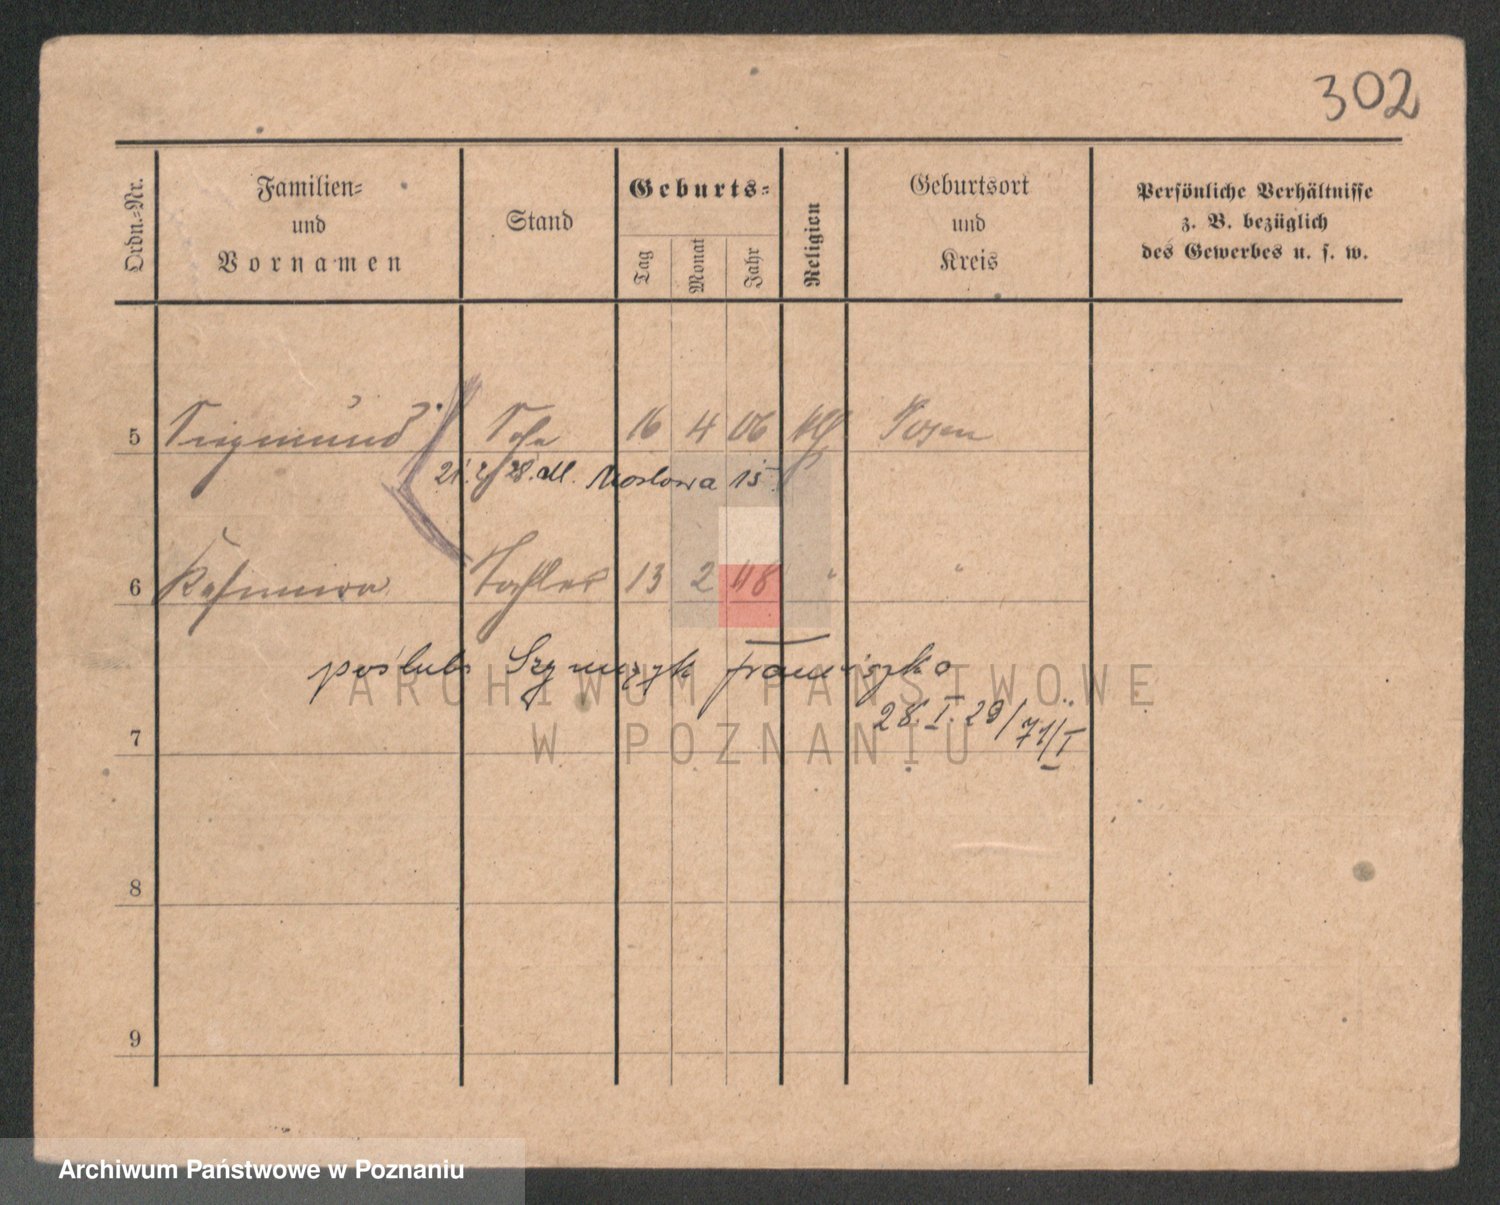 302
Ordn.-Nr.
Familien-
und
Vornamen
Stand
Geburts-
Tag
Monat
Jahr
Religion
Geburtsort
und
Kreis
Persönliche Verhältnisse
z. B. bezüglich
des Gewerbes u. s. w.
5 Sigmund Sohn 16 4 06 Posen
28. M. 15
6 Kasimira Tochter 13 2 " "
poślub. Szymczyk Franciszka
28. I. 29/71/I
7
8
9
ARCHIWUM PAŃSTWOWE
W POZNANIU
Archiwum Państwowe w Poznaniu